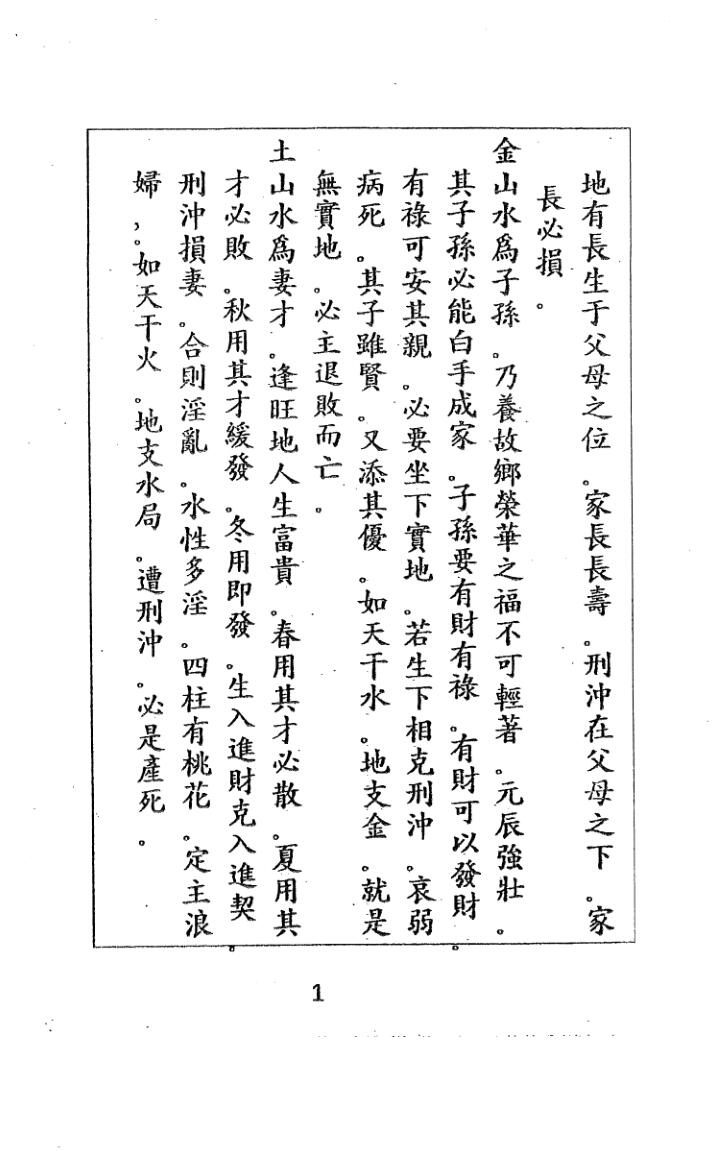 地有長生于父母之位。家長長壽。刑沖在父母之下。家
長必損。
金山水爲子孫。乃養故鄉榮華之福不可輕著。元辰強壯。
其子孫必能白手成家。子孫要有財有祿。有財可以發財。
有祿可安其親。必要坐下實地。若生下相克刑沖。哀弱
病死。其子雖賢。又添其優。如天干水。地支金。就是
無實地。必主退敗而亡。
土山水爲妻才。逢旺地人生富貴。春用其才必散。夏用其
才必敗。秋用其才緩發。冬用即發。生入進財克入進契。
刑沖損妻。合則淫亂。水性多淫。四柱有桃花。定主浪
婦,。如天干火。地支水局。遭刑沖。必是產死。
1